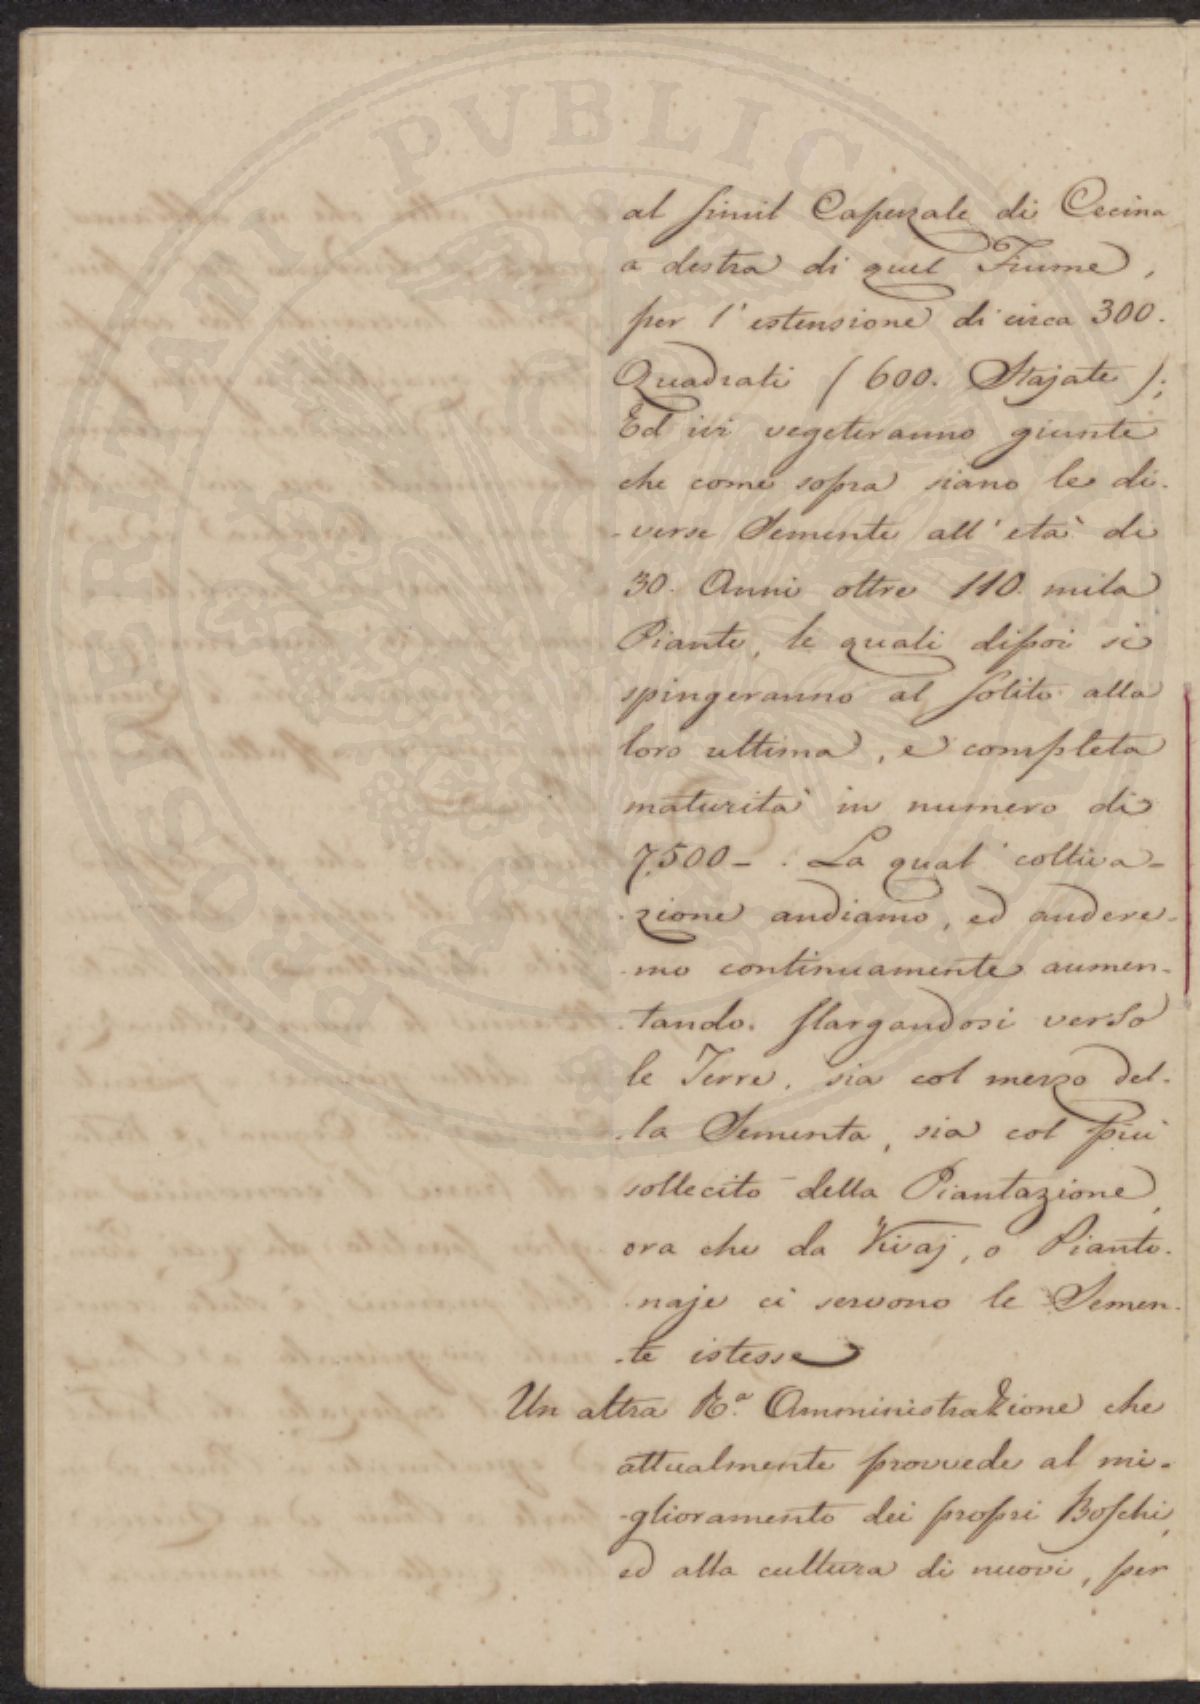 PROSPERITATI PVBLICAE
al simil Capezzale di Cecina
a destra di quel Fiume,
per l'estensione di circa 300.
Quadrati (600. Stajate);
Ed ivi vegeteranno giunte
che come sopra siano le di-
-verse Semente all'età di
30. Anni oltre 110. mila
Piante, le quali dipoi si
spingeranno al solito alla
loro ultima, e completa
maturità in numero di
7,500 -. La qual coltiva-
-zione andiamo, ed andere-
-mo continuamente aumen-
-tando. slargandosi verso
le Terre, sia col mezzo del-
-la Sementa, sia col più
sollecito della Piantazione,
ora che da Vivaj, o Pianto-
-naje ci servono le Semen-
-te istesse
Un altra R.ª Amministrazione che
attualmente provvede al mi-
-glioramento dei propri Boschi,
ed alla cultura di nuovi, per